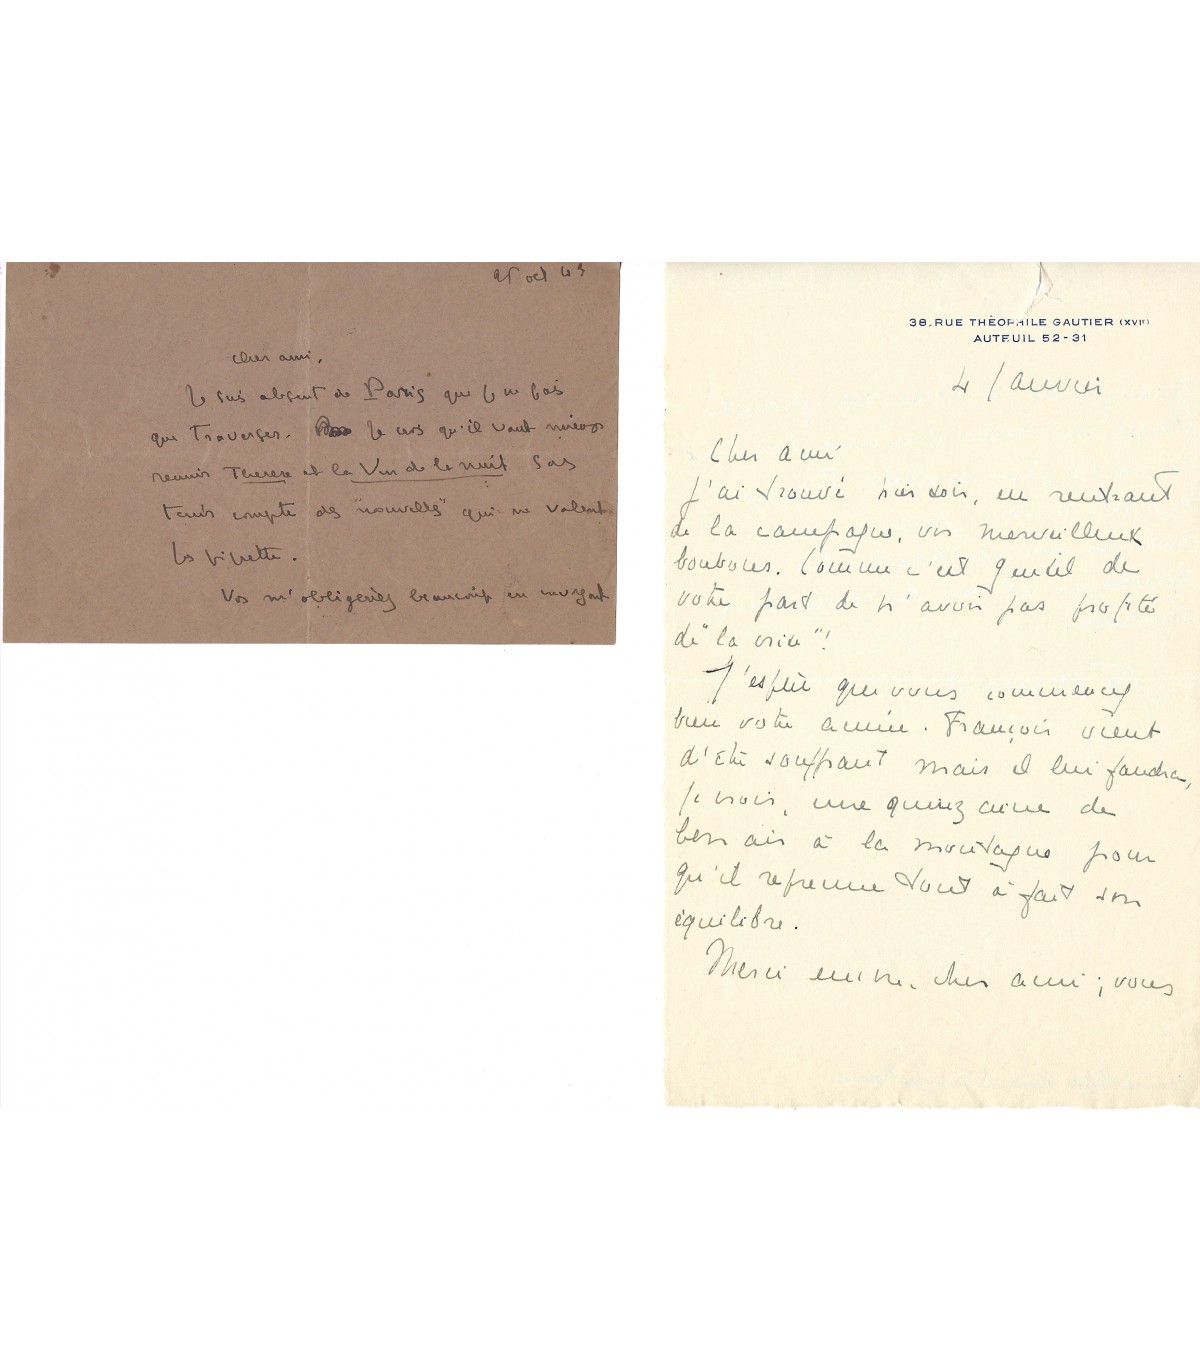 25 oct 43
Cher ami,
Je suis absent de Paris que je ne fais
que traverser. Je crois qu'il vaut mieux
reunir Therese et la Fin de la nuit sans
tenir compte des "nouvelles" qui ne valent
pas pipette.
Vous m'obligeriez beaucoup en
38, RUE THÉOPHILE GAUTIER (XVIᵉ)
AUTEUIL 52-31
4 Janvier
Cher ami
J'ai trouvé hier soir, en rentrant
de la campagne, vos merveilleux
bonbons. Comme c'est gentil de
votre part de n'avoir pas profité
de "la crise"!
J'espère que vous commencez
bien votre année. François vient
d'être souffrant mais il lui faudra,
je crois, une quinzaine de
bon air à la montagne pour
qu'il reprenne tout à fait son
équilibre.
Merci encore, cher ami ; vous